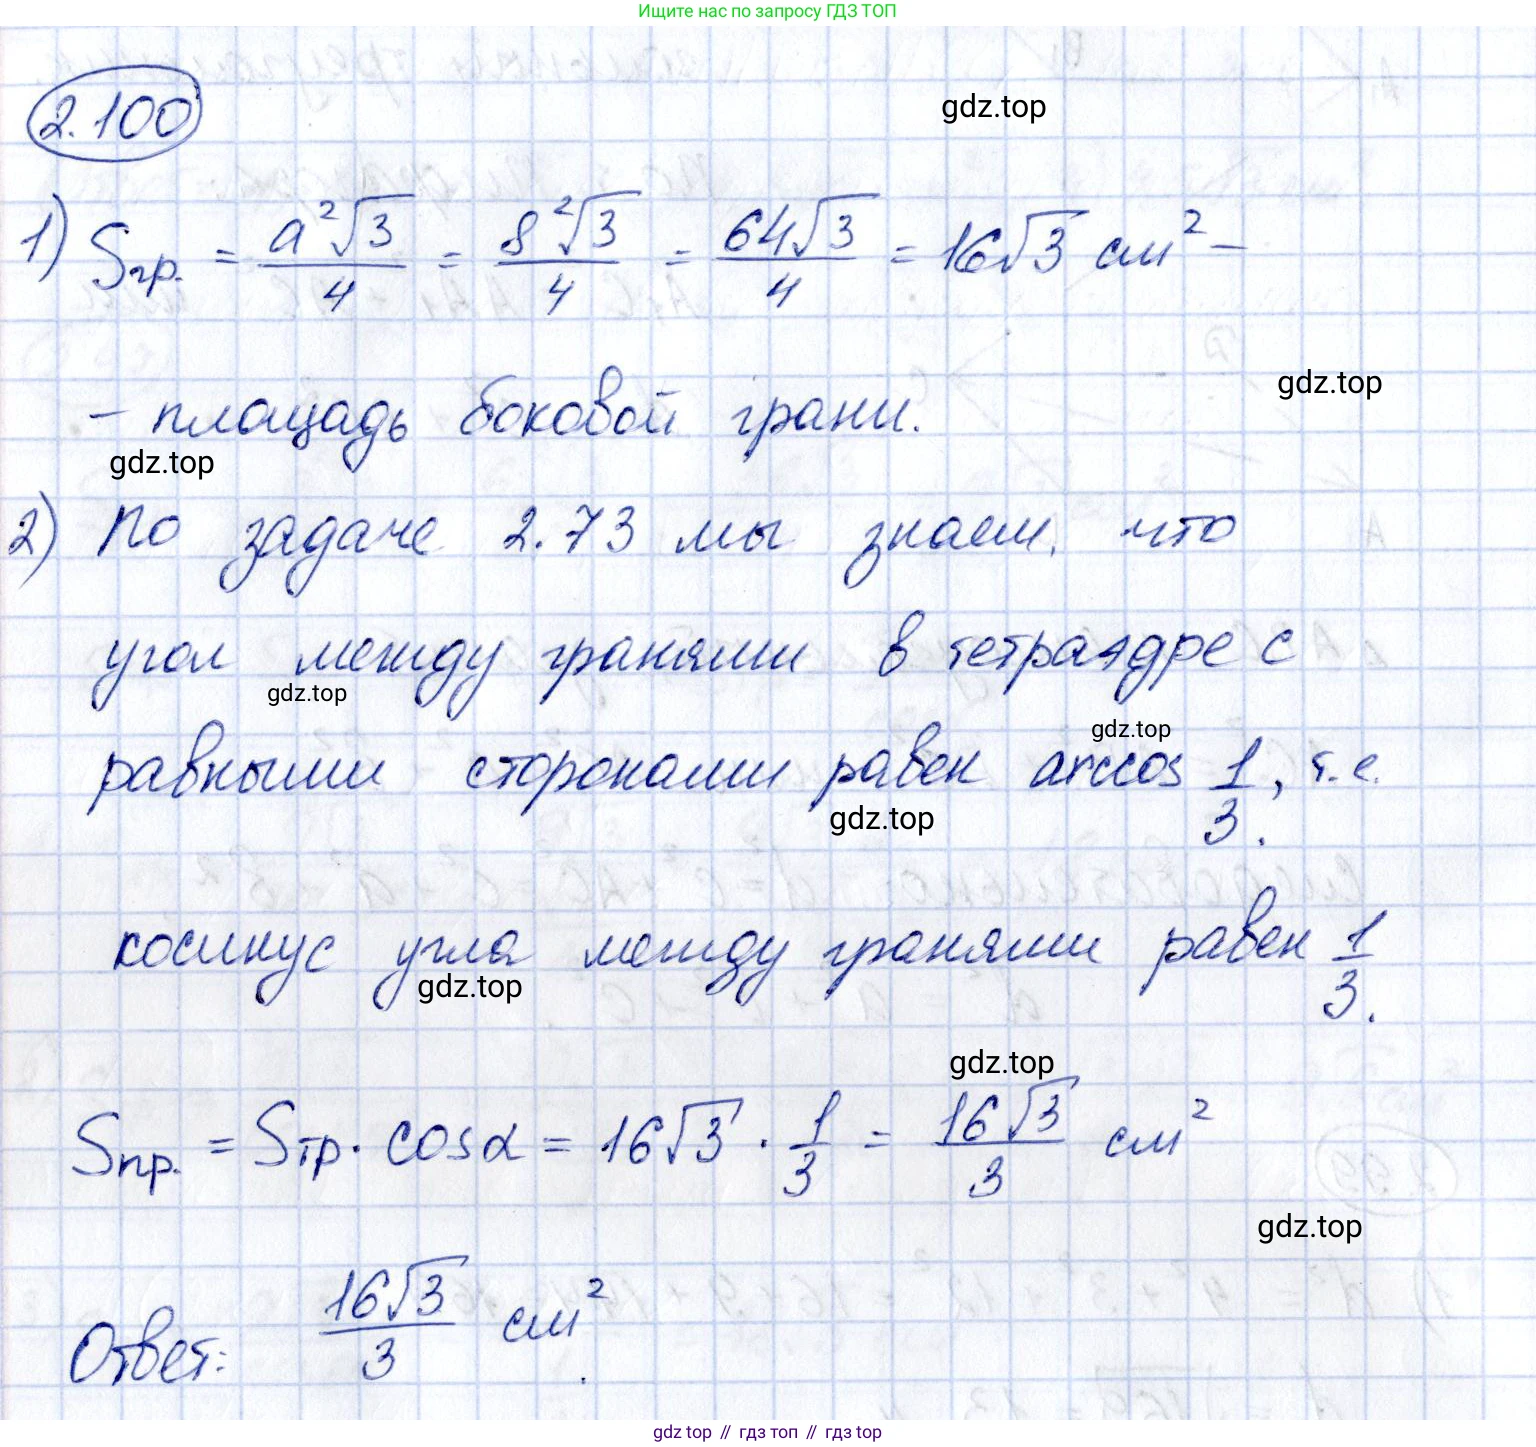 Ищите нас по запросу ГДЗ ТОП
2.100
gdz.top
1) Sгр. = a²√3/4 = 8²√3/4 = 64√3/4 = 16√3 см² –
– площадь боковой грани.
gdz.top
gdz.top
2) По задаче 2.73 мы знаем, что
угол между гранями в тетраэдре с
gdz.top
gdz.top
равными сторонами равен arccos 1/3, т.е.
gdz.top
косинус угла между гранями равен 1/3.
gdz.top
gdz.top
Sпр. = Sтр. cosα = 16√3 · 1/3 = 16√3/3 см²
gdz.top
Ответ: 16√3/3 см².
gdz top // гдз топ // гдз top